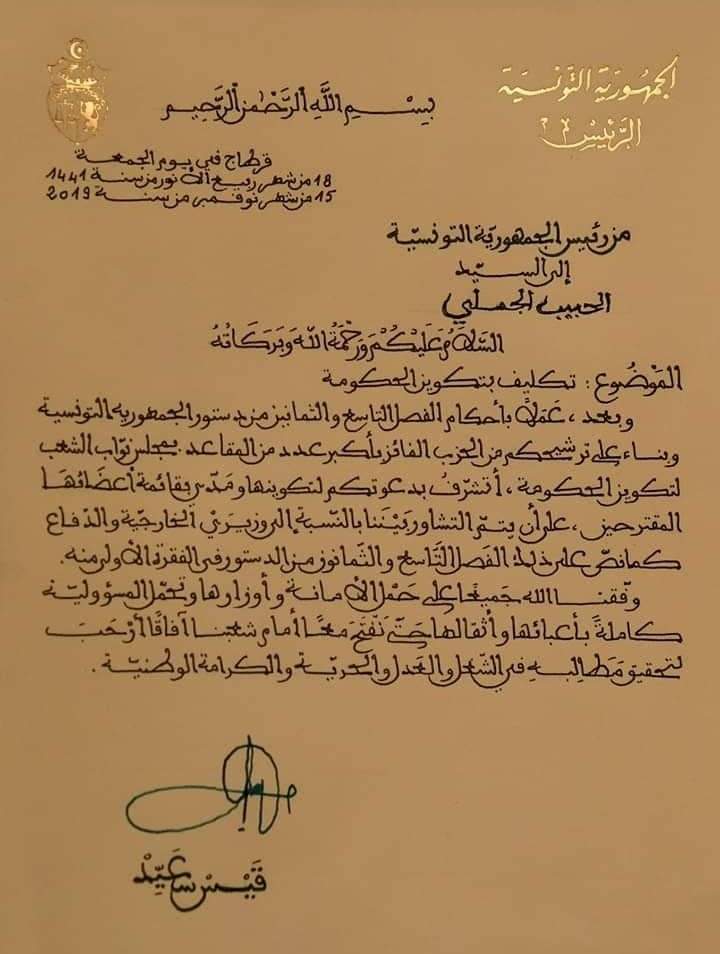 الجمهورية التونسية
الرئيس
بِسْمِ اللَّهِ الرَّحْمٰنِ الرَّحِيمِ
قرطاج في يوم الجمعة
18 من شهر ربيع الأنور من سنة 1441
15 من شهر نوفمبر من سنة 2019
من رئيس الجمهوريّة التونسيّة
إلى السيّد
الحبيب الجملي
السَّلَامُ عَلَيْكُمْ وَرَحْمَةُ اللَّهِ وَبَرَكَاتُهُ
المَوْضُوع : تكليف بتكوين الحكومة
وبعد، عَمَلًا بأحكام الفصل التاسع والثمانين من دستور الجمهورية التونسية
وبناء على ترشيحكم من الحزب الفائز بأكبر عدد من المقاعد بمجلس نوّاب الشعب
لتكوين الحكومة، أتشرّفُ بدعوتكم لتكوينها ومَدّي بقائمة أعضائها
المقترحين، على أن يتمّ التشاور بَيْننا بالنّسبة إلى وزيريْ الخارجيّة والدّفاع
كما نصّ على ذلك الفصل التّاسع والثّمانون من الدستور في الفقرة الأولى منه.
وفّقنا الله جَميعًا على حَمْل الأمانة وأوزارها وتحمّل المسؤوليّة
كاملةً بأعبائها وأثقالها حتّى نَفْتَحَ معًا أمام شعبنا آفاقًا أرْحَبَ
لتحقيق مَطالبه في الشّغل والعَدل والحريّة والكرامة الوطنيّة.
قَيْس سَعَيِّدْ